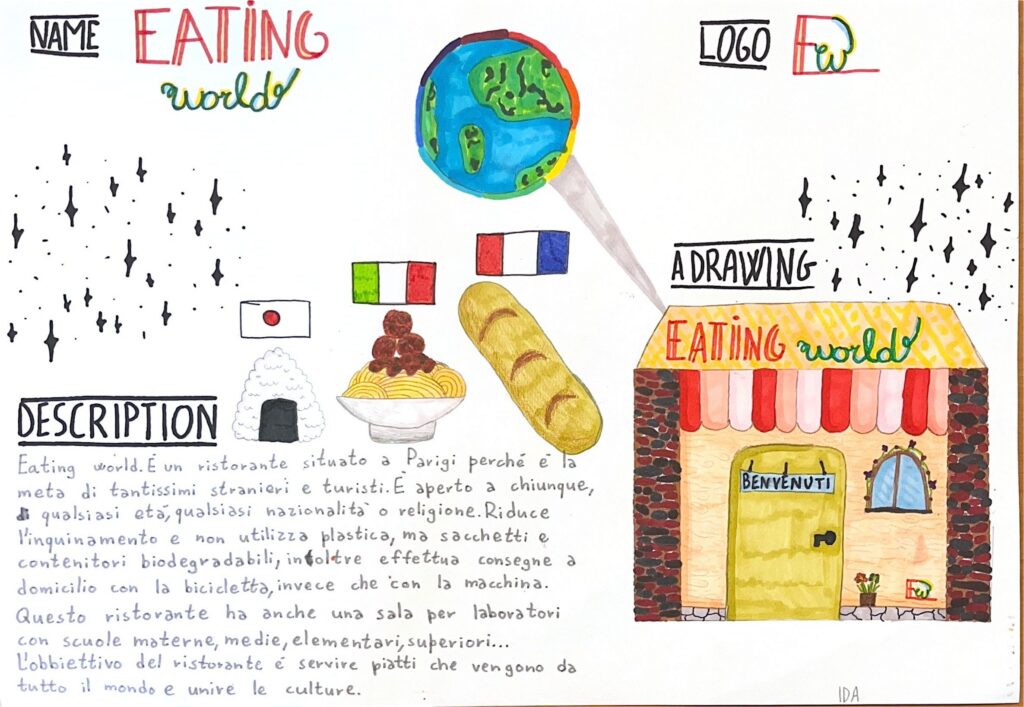 NAME
EATING
world
LOGO
EW
A DRAWING
EATING world
BENVENUTI
EW
DESCRIPTION
Eating world. È un ristorante situato a Parigi perché è la
meta di tantissimi stranieri e turisti. È aperto a chiunque,
di qualsiasi età, qualsiasi nazionalità o religione. Riduce
l'inquinamento e non utilizza plastica, ma sacchetti e
contenitori biodegradabili, inoltre effettua consegne a
domicilio con la bicicletta, invece che con la macchina.
Questo ristorante ha anche una sala per laboratori
con scuole materne, medie, elementari, superiori...
L'obbiettivo del ristorante è servire piatti che vengono da
tutto il mondo e unire le culture.
IDA